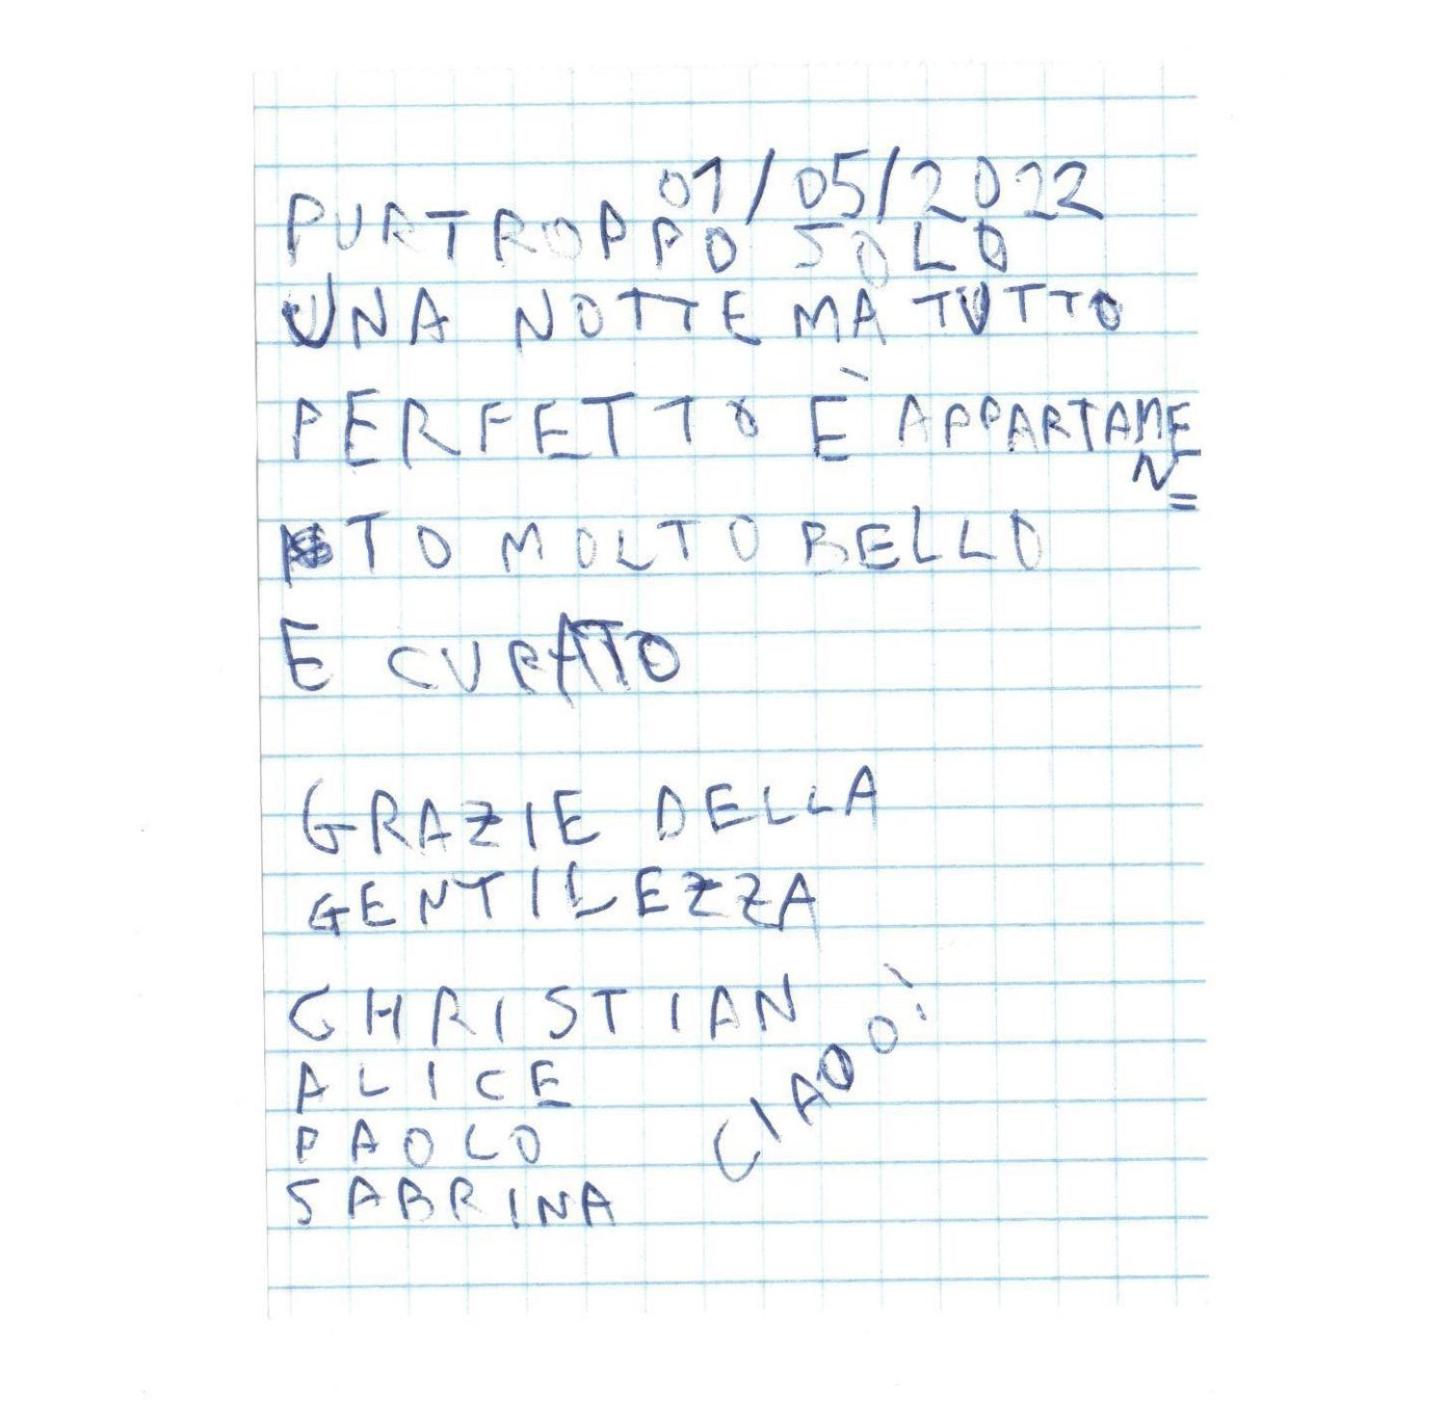 01/05/2022
PURTROPPO SOLO
UNA NOTTE MA TUTTO
PERFETTO È APPARTAME
N=
TO MOLTO BELLO
E CURATO
GRAZIE DELLA
GENTILEZZA
CHRISTIAN
ALICE
PAOLO
SABRINA
CIAOOO!